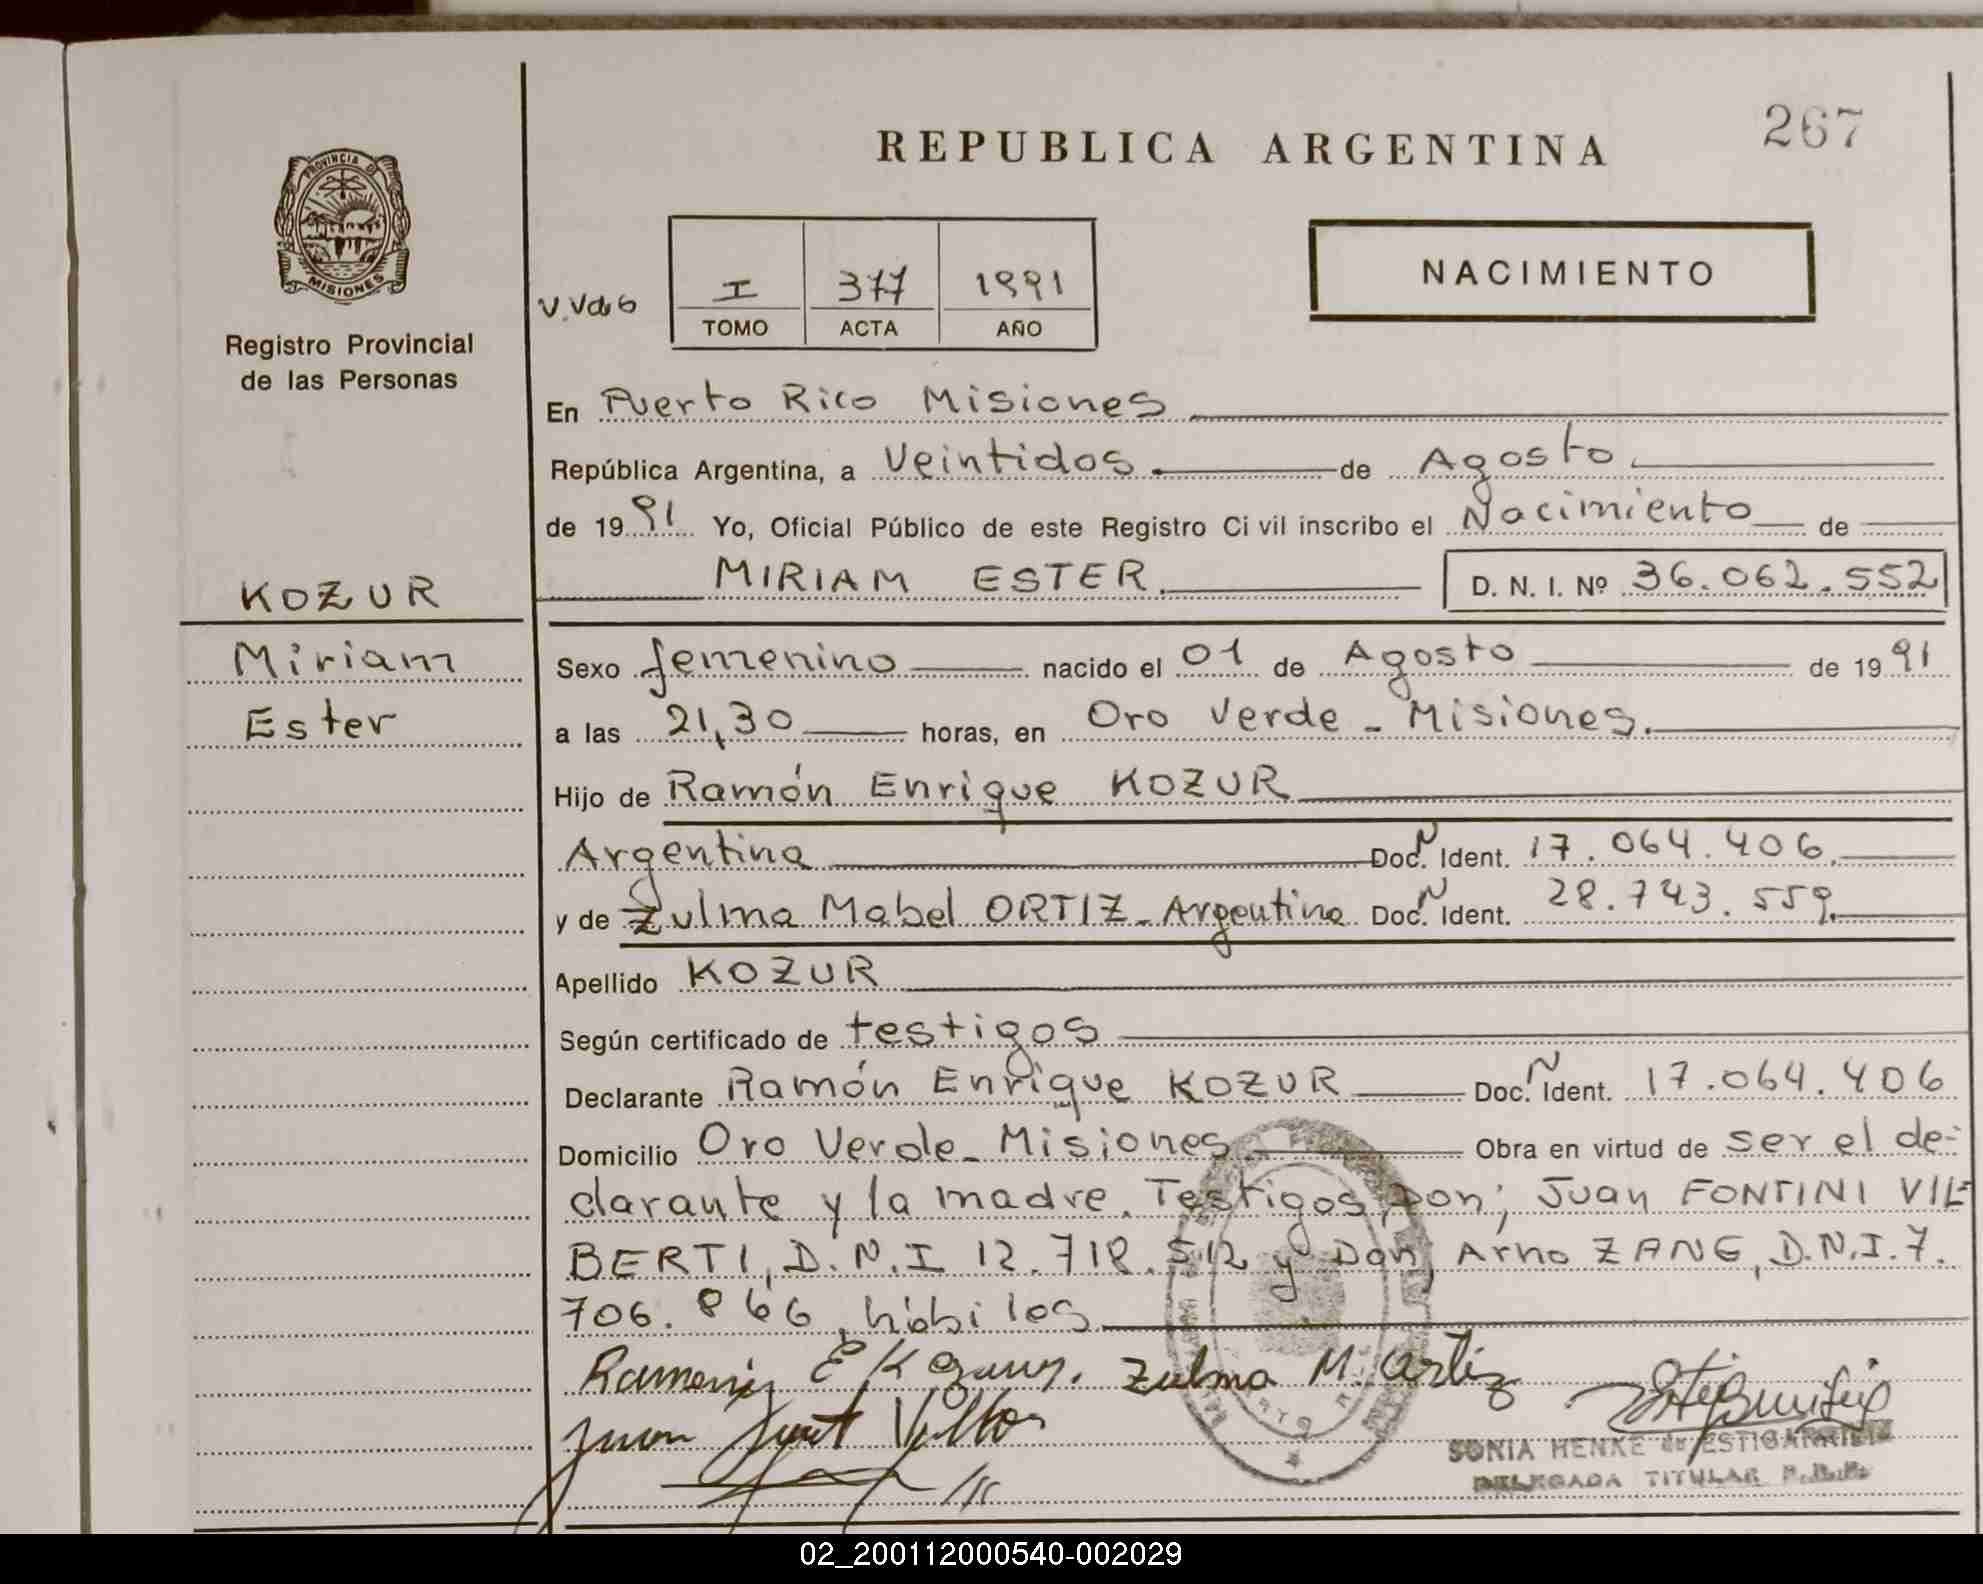 267
REPUBLICA ARGENTINA
PROVINCIA DE
MISIONES
Registro Provincial
de las Personas
NACIMIENTO
I 377 1991
TOMO ACTA AÑO
En Puerto Rico Misiones
República Argentina, a Veintidos de Agosto
de 1991 Yo, Oficial Público de este Registro Civil inscribo el Nacimiento de
MIRIAM ESTER. D. N. I. Nº 36.062.552
KOZUR
Miriam
Ester
Sexo femenino nacido el 01 de Agosto de 1991
a las 21,30 horas, en Oro Verde - Misiones.
Hijo de Ramón Enrique KOZUR
Argentina Doc. N Ident. 17.064.406.
y de Zulma Mabel ORTIZ - Argentina Doc. N Ident. 28.743.559.
Apellido KOZUR
Según certificado de testigos
Declarante Ramón Enrique KOZUR Doc. N Ident. 17.064.406
Domicilio Oro Verde - Misiones. Obra en virtud de ser el de-
clarante y la madre. Testigos, Don; Juan FONTINI VIL-
BERTI, D.N.I 12.718.512 y Don, Arno ZANG, D.N.I. 7.
706.866, hábiles
Zulma M. Ortiz
Juan
SONIA HENKE de ESTIGARRIBIA
DELEGADA TITULAR
02_200112000540-002029